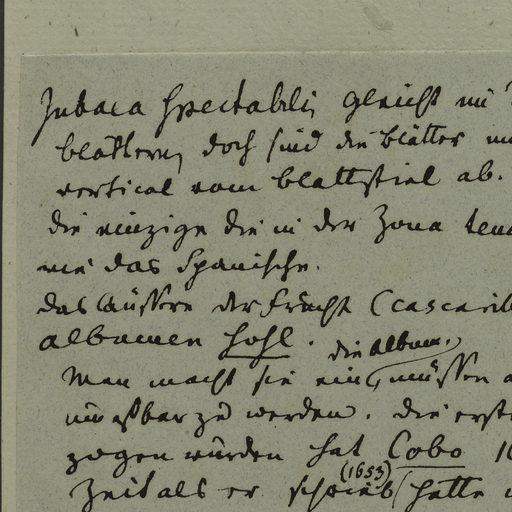 Jubaea spectabilis gleicht
blättern, doch sind die blätter
vertical vom blattstiel ab.
die einzige die in der Zona
wie das Spanische.
das äussere der Frucht (cascarill
albumen hohl.
die album.
Man macht sie ein, müssen
um essbar zu werden. die erst
zogen wurden hat Cobo
(1653)
Zeit als er schrieb hatte